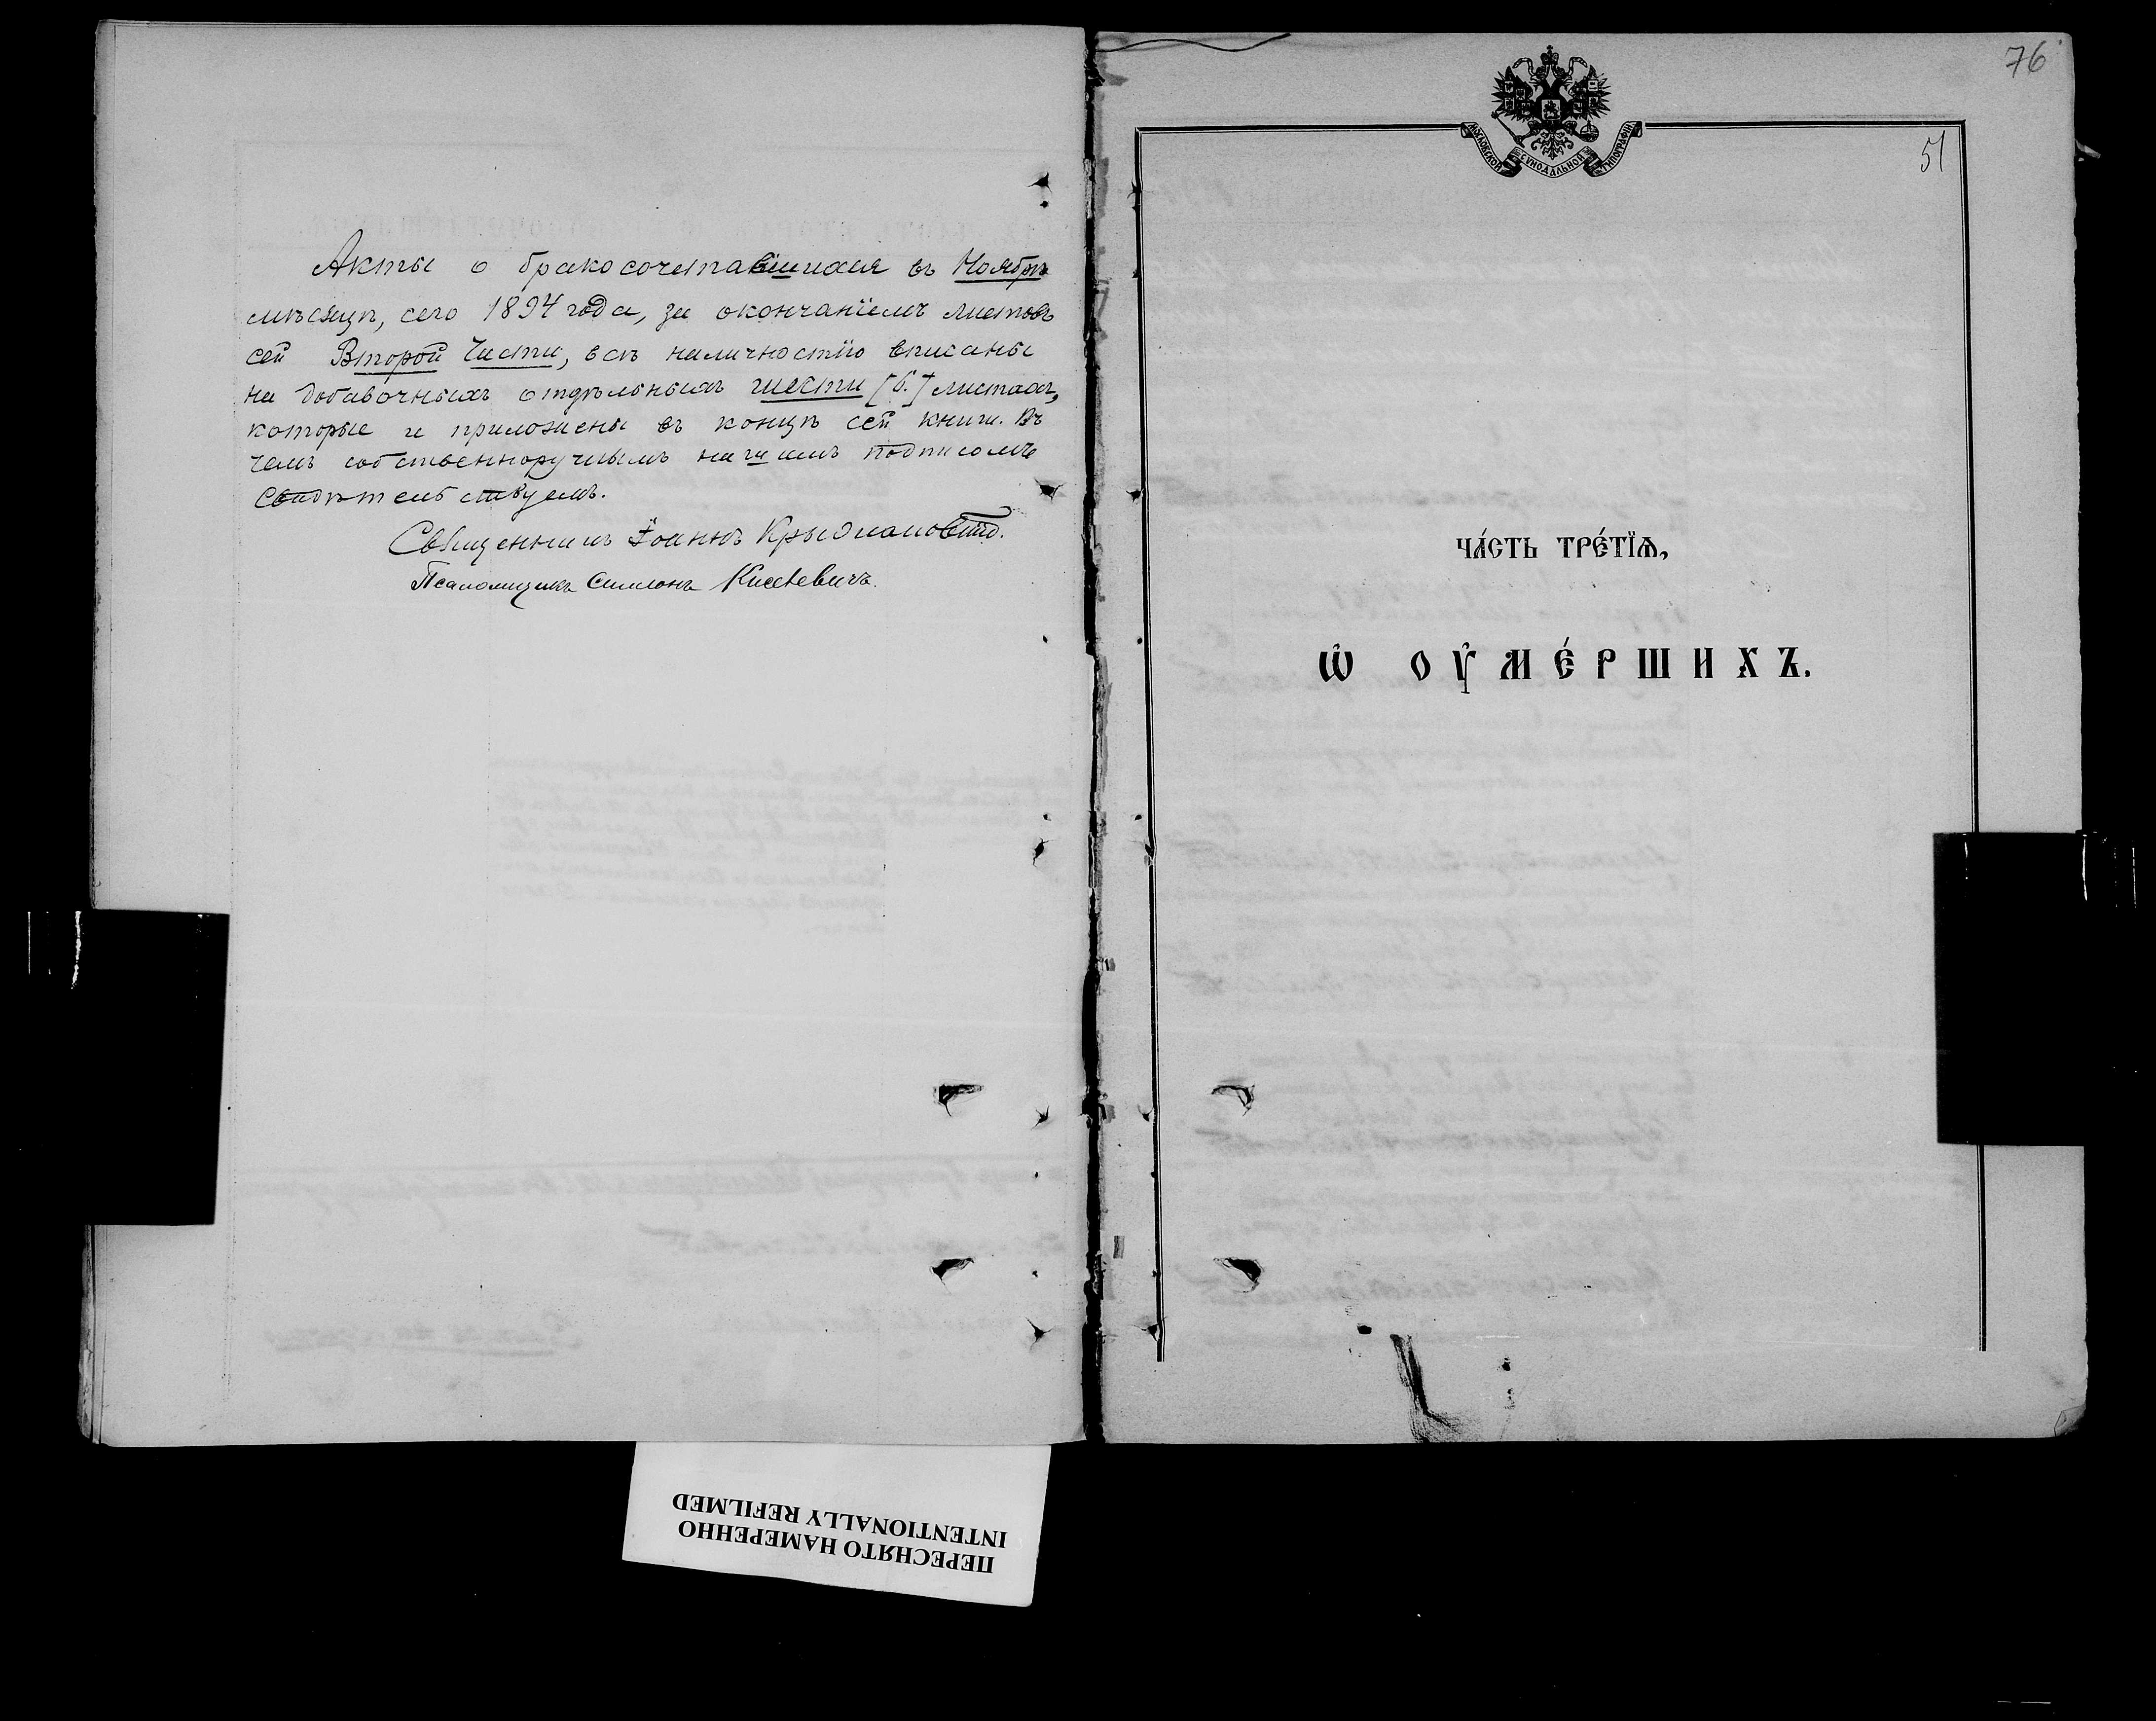 Акты о бракосочетавшихся въ Ноябрѣ
мѣсяцѣ, сего 1894 года, за окончаніемъ листовъ
сей Второй Части, всѣ наличностію вписаны
на добавочныхъ отдѣльныхъ шести [6.] листахъ,
которые и приложены въ концѣ сей книги. Въ
чемъ собственноручнымъ нашимъ подписомъ
свидѣтельствуемъ.
Священникъ Іоаннъ
Псаломщикъ Симеонъ Киселевичъ.
76
51
МОСКОВСКОЙ СѴНОДАЛЬНОЙ ТИПОГРАФІИ
ЧА́СТЬ ТРЕ́ТЇѦ,
Ѡ҆ ОУ҆МЕ́РШИХЪ.
ПЕРЕСНЯТО НАМЕРЕННО
INTENTIONALLY REFILMED